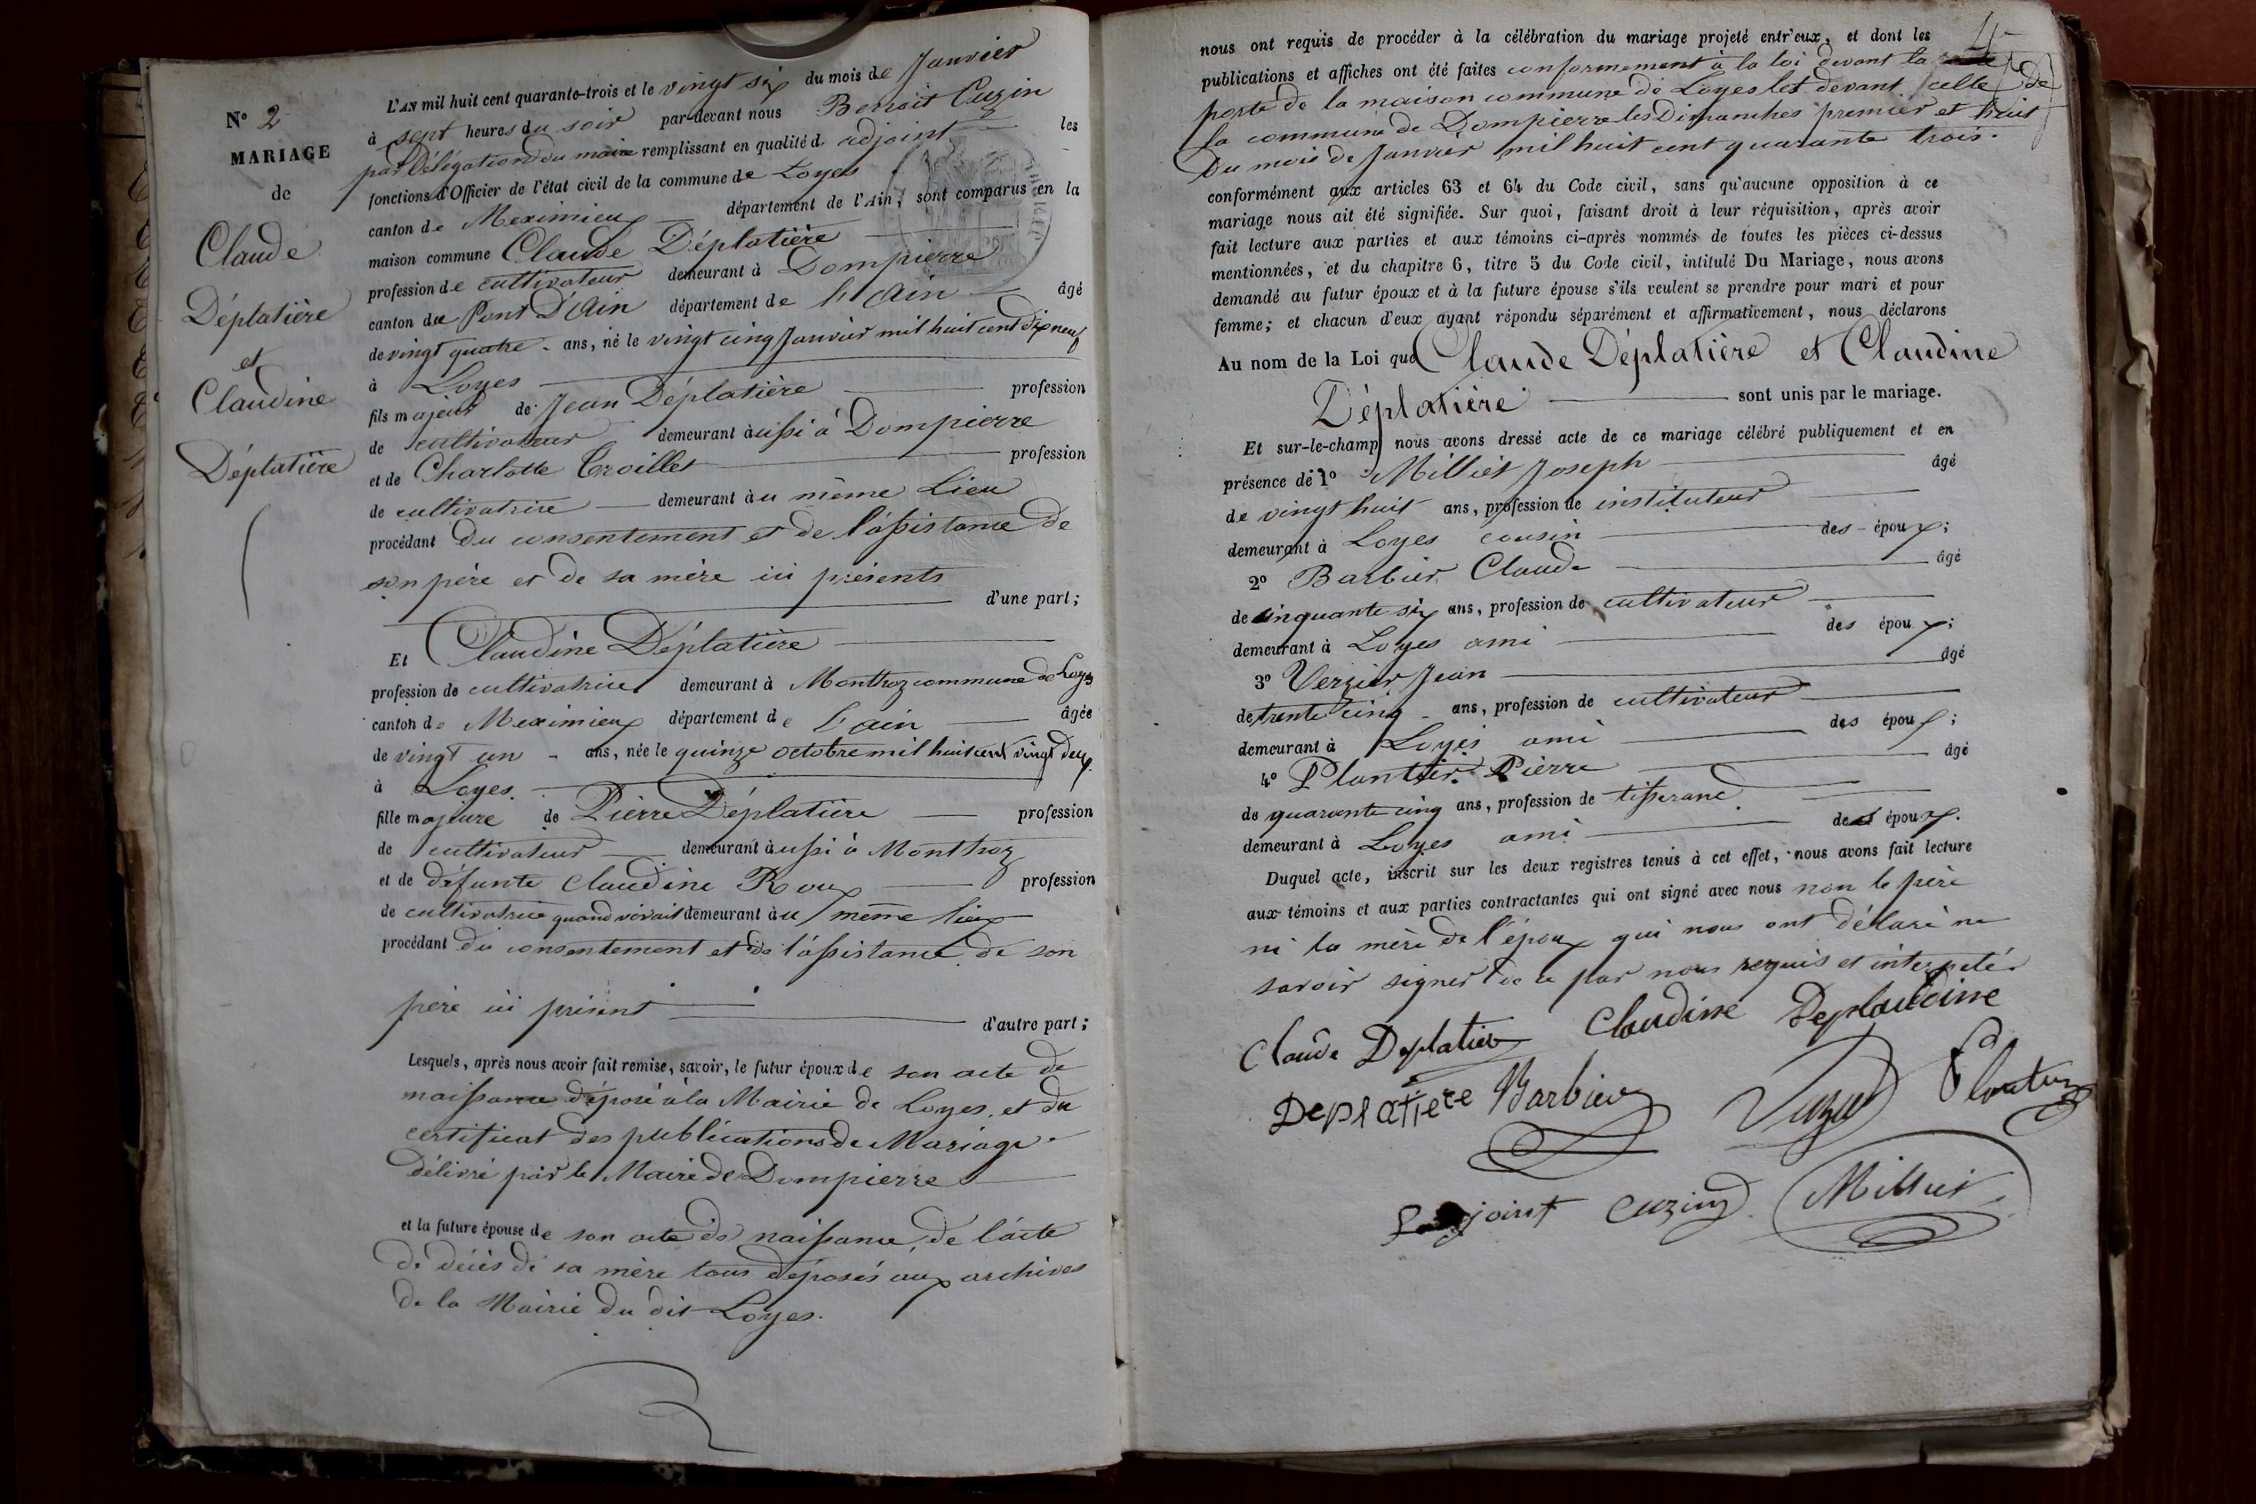 N° 2
MARIAGE
de
Claude
Déplatière
et
Claudine
Déplatière
L'AN mil huit cent quarante-trois et le vingt six du mois de Janvier
à sept heures du soir par-devant nous Benoit Cuzin
par délégation du maire remplissant en qualité d adjoint les
fonctions d'Officier de l'état civil de la commune de Loyes
canton de Meximieux département de l'Ain, sont comparus en la
maison commune Claude Déplatière
profession de cultivateur demeurant à Dompierre
canton de Pont D'Ain département de l'Ain âgé
de vingt quatre ans, né le vingt cinq Janvier mil huit cent dix neuf
à Loyes
fils majeur de Jean Déplatière profession
de cultivateur demeurant aussi à Dompierre
et de Charlotte Troillet profession
de cultivatrice demeurant au même Lieu
procédant du consentement et de l'assistance de
son père et de sa mère ici présents
d'une part;
Et Claudine Déplatière
profession de cultivatrice demeurant à Monthoz commune de Loyes
canton de Meximieux département de l'ain âgée
de vingt un ans, née le quinze octobre mil huit cent vingt deux
à Loyes.
fille majeure de Pierre Déplatière profession
de cultivateur demeurant aussi à Monthoz
et de défunte Claudine Roux profession
de cultivatrice quand vivait demeurant au même lieu
procédant du consentement et de l'assistance de son
père ici présent
d'autre part;
Lesquels, après nous avoir fait remise, savoir, le futur époux de son acte de
naissance déposé à la Mairie de Loyes, et du
certificat des publications de Mariage
délivré par le Maire de Dompierre
et la future épouse de son acte de naissance, de l'acte
de décès de sa mère tous déposés aux archives
de la Mairie du dit Loyes.
nous ont requis de procéder à la célébration du mariage projeté entr'eux, et dont les
publications et affiches ont été faites conformement à la loi devant la
porte de la maison commune de Loyes et devant celle de
la commune de Dompierre les Dimanches premier et huit
du mois de Janvier mil huit cent quarante trois.
conformément aux articles 63 et 64 du Code civil, sans qu'aucune opposition à ce
mariage nous ait été signifiée. Sur quoi, faisant droit à leur réquisition, après avoir
fait lecture aux parties et aux témoins ci-après nommés de toutes les pièces ci-dessus
mentionnées, et du chapitre 6, titre 5 du Code civil, intitulé Du Mariage, nous avons
demandé au futur époux et à la future épouse s'ils veulent se prendre pour mari et pour
femme; et chacun d'eux ayant répondu séparément et affirmativement, nous déclarons
Au nom de la Loi que Claude Déplatière et Claudine
Déplatière sont unis par le mariage.
Et sur-le-champ nous avons dressé acte de ce mariage célébré publiquement et en
présence de 1° Milliet Joseph âgé
de vingt huit ans, profession de instituteur
demeurant à Loyes cousin des époux;
2° Barbier Claude âgé
de cinquante six ans, profession de cultivateur
demeurant à Loyes ami des époux;
3° Verzier Jean âgé
de trente cinq ans, profession de cultivateur
demeurant à Loyes ami des époux;
4° Plantier Pierre âgé
de quarante cinq ans, profession de tisserand
demeurant à Loyes ami des époux.
Duquel acte, inscrit sur les deux registres tenus à cet effet, nous avons fait lecture
aux témoins et aux parties contractantes qui ont signé avec nous non le père
ni la mère de l'époux qui nous ont déclaré ne
savoir signer de ce par nous requis et interpelés
Claude Deplatier Claudine
DePlatiere Barbier
adjoint Cuzin Milliet